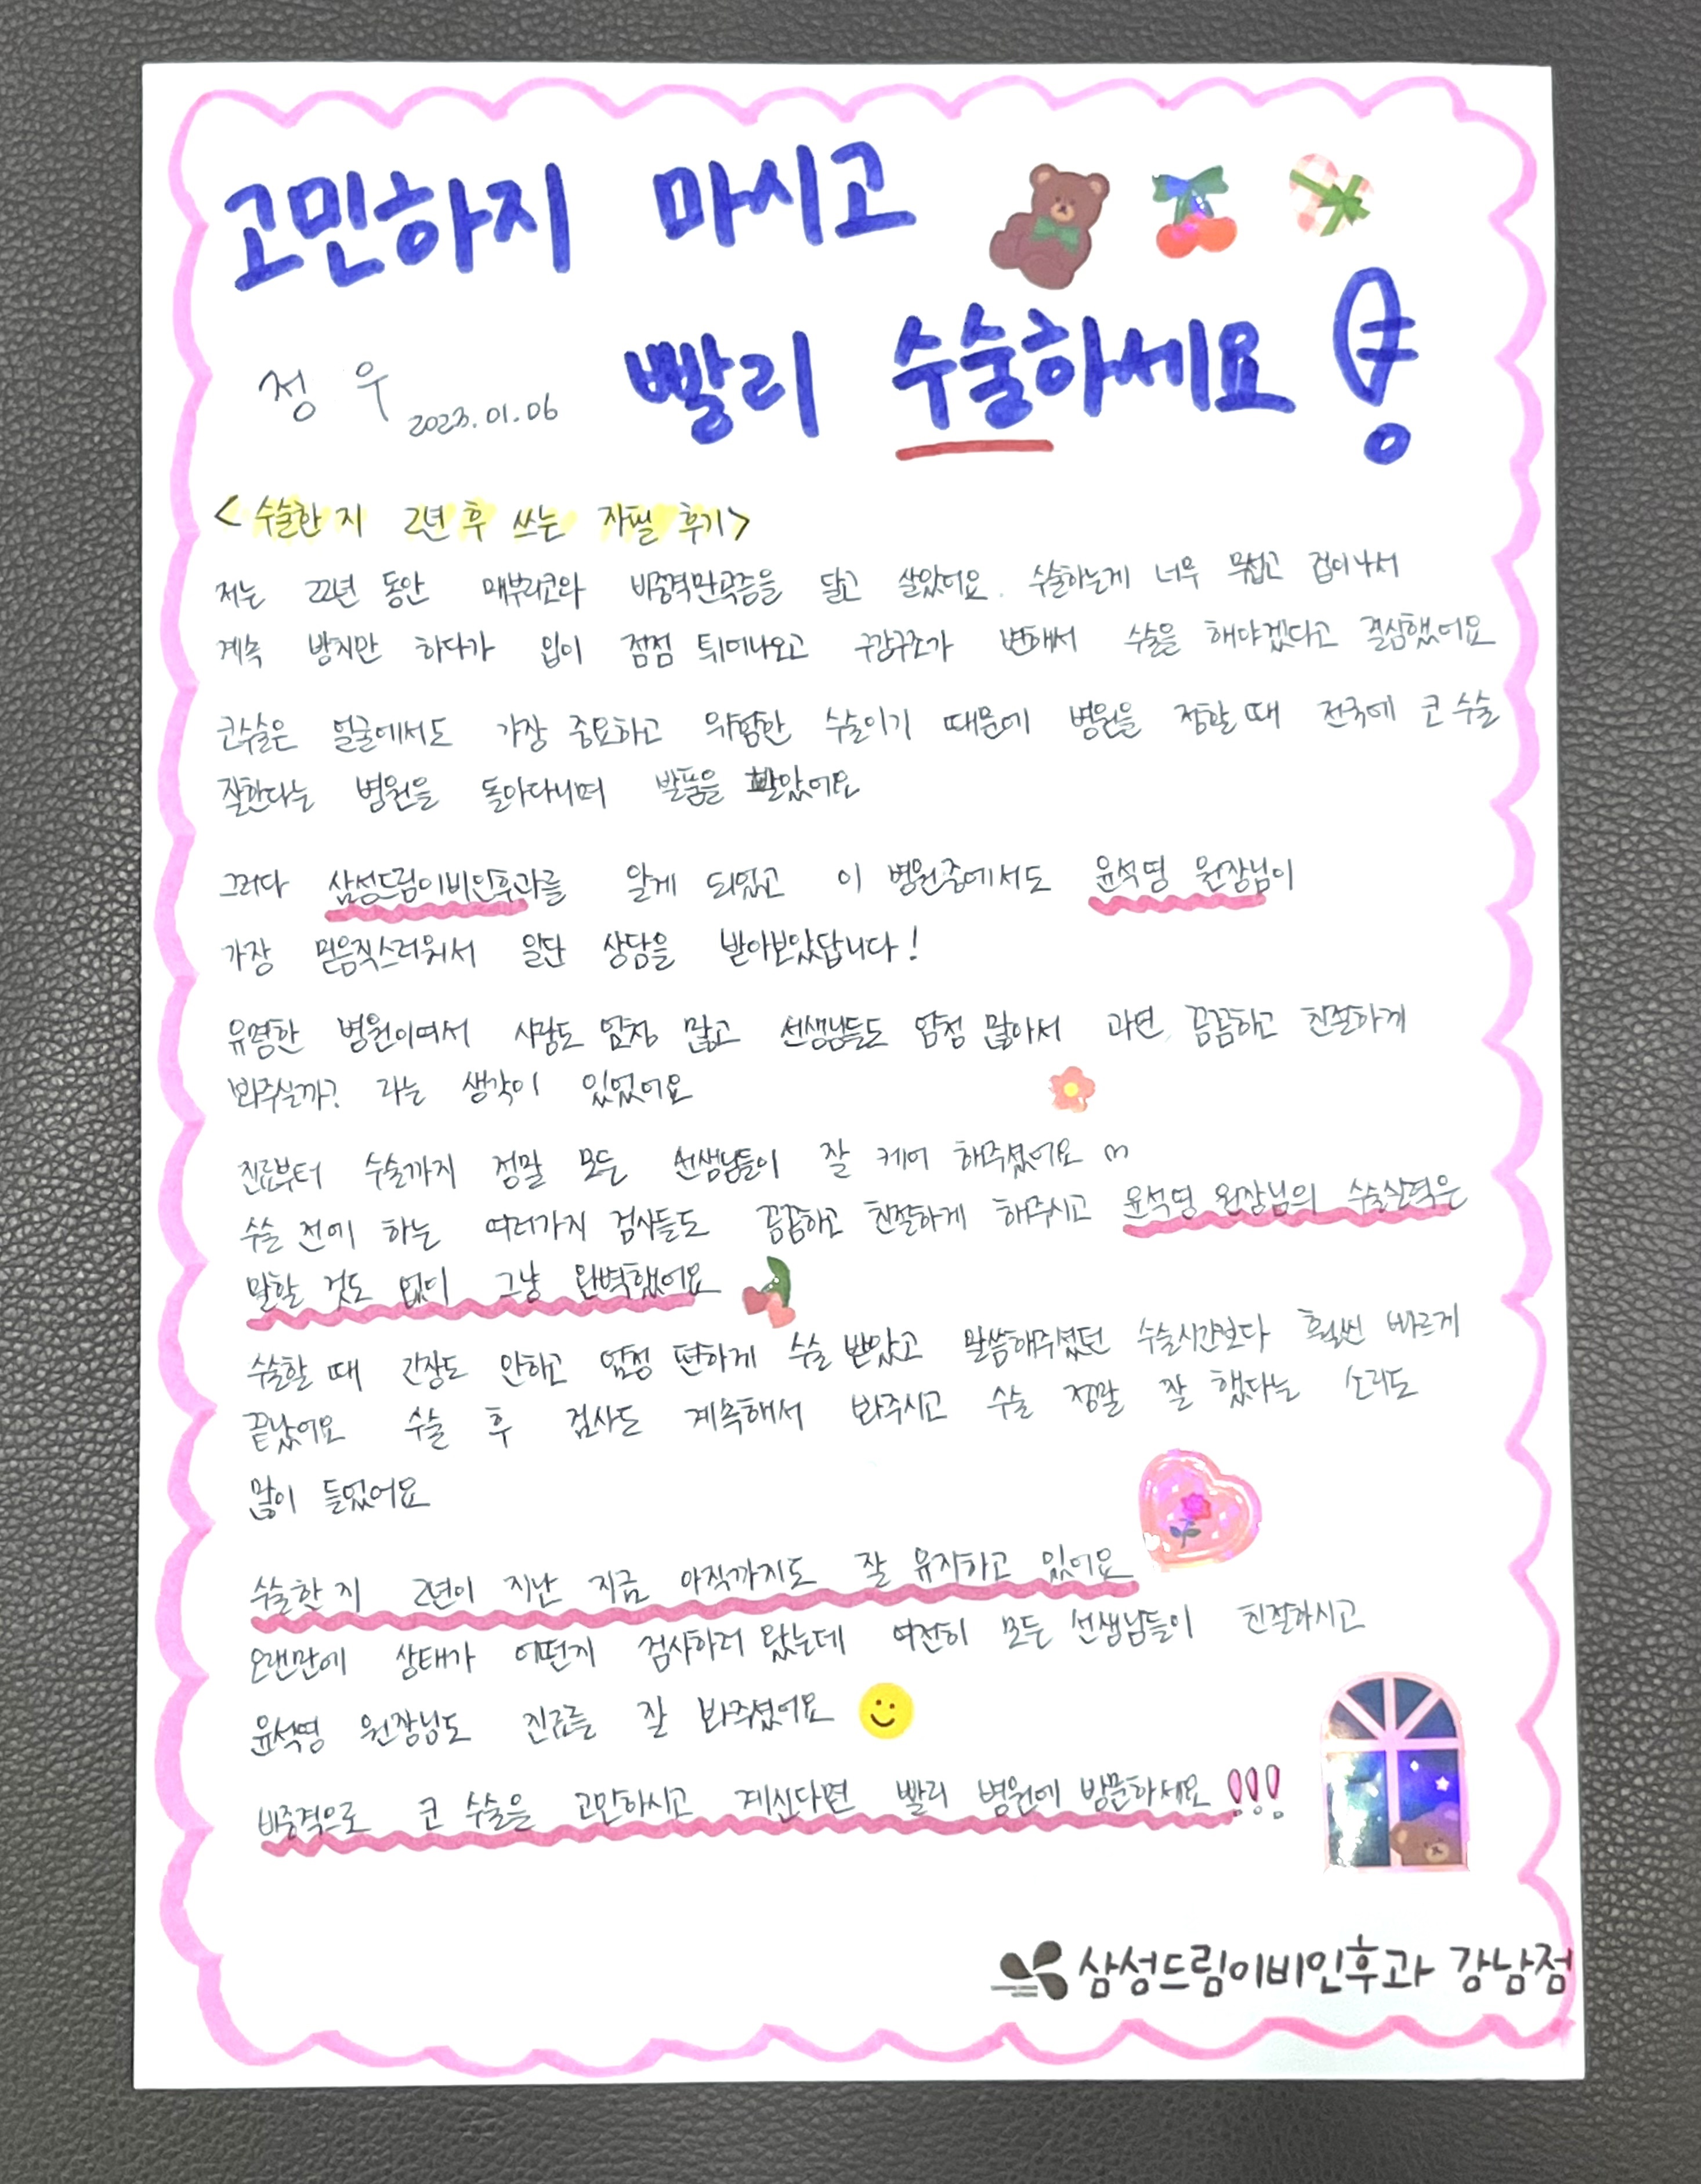 고민하지 마시고
빨리 수술하세요!
정우 2023.01.06
<수술한 지 2년 후 쓰는 자필 후기>
저는 22년 동안 매부리코와 비중격만곡증을 달고 살았어요. 수술하는게 너무 무섭고 겁이나서
계속 방치만 하다가 입이 점점 튀어나오고 구강구조가 변해서 수술을 해야겠다고 결심했어요
코수술은 얼굴에서도 가장 중요하고 위험한 수술이기 때문에 병원을 정할 때 전국에 코 수술
잘한다는 병원을 돌아다니며 발품을 팔았어요
그러다 삼성드림이비인후과를 알게 되었고 이 병원중에서도 윤석영 원장님이
가장 믿음직스러워서 일단 상담을 받아보았답니다!
유명한 병원이여서 사람도 엄청 많고 선생님들도 엄청 많아서 과연 꼼꼼하고 친절하게
봐주실까? 라는 생각이 있었어요
진료부터 수술까지 정말 모든 선생님들이 잘 케어 해주셨어요 ෆ
수술 전에 하는 여러가지 검사들도 꼼꼼하고 친절하게 해주시고 윤석영 원장님의 수술실력은
말할 것도 없이 그냥 완벽했어요
수술할 때 긴장도 안하고 엄청 편하게 수술 받았고 말씀해주셨던 수술시간보다 훨씬 빠르게
끝났어요 수술 후 검사도 계속해서 봐주시고 수술 정말 잘 했다는 소리도
많이 들었어요
수술한 지 2년이 지난 지금 아직까지도 잘 유지하고 있어요
오랜만에 상태가 어떤지 검사하러 왔는데 여전히 모든 선생님들이 친절하시고
윤석영 원장님도 진료를 잘 봐주셨어요
비중격으로 코 수술을 고민하시고 계신다면 빨리 병원에 방문하세요!!!
삼성드림이비인후과 강남점